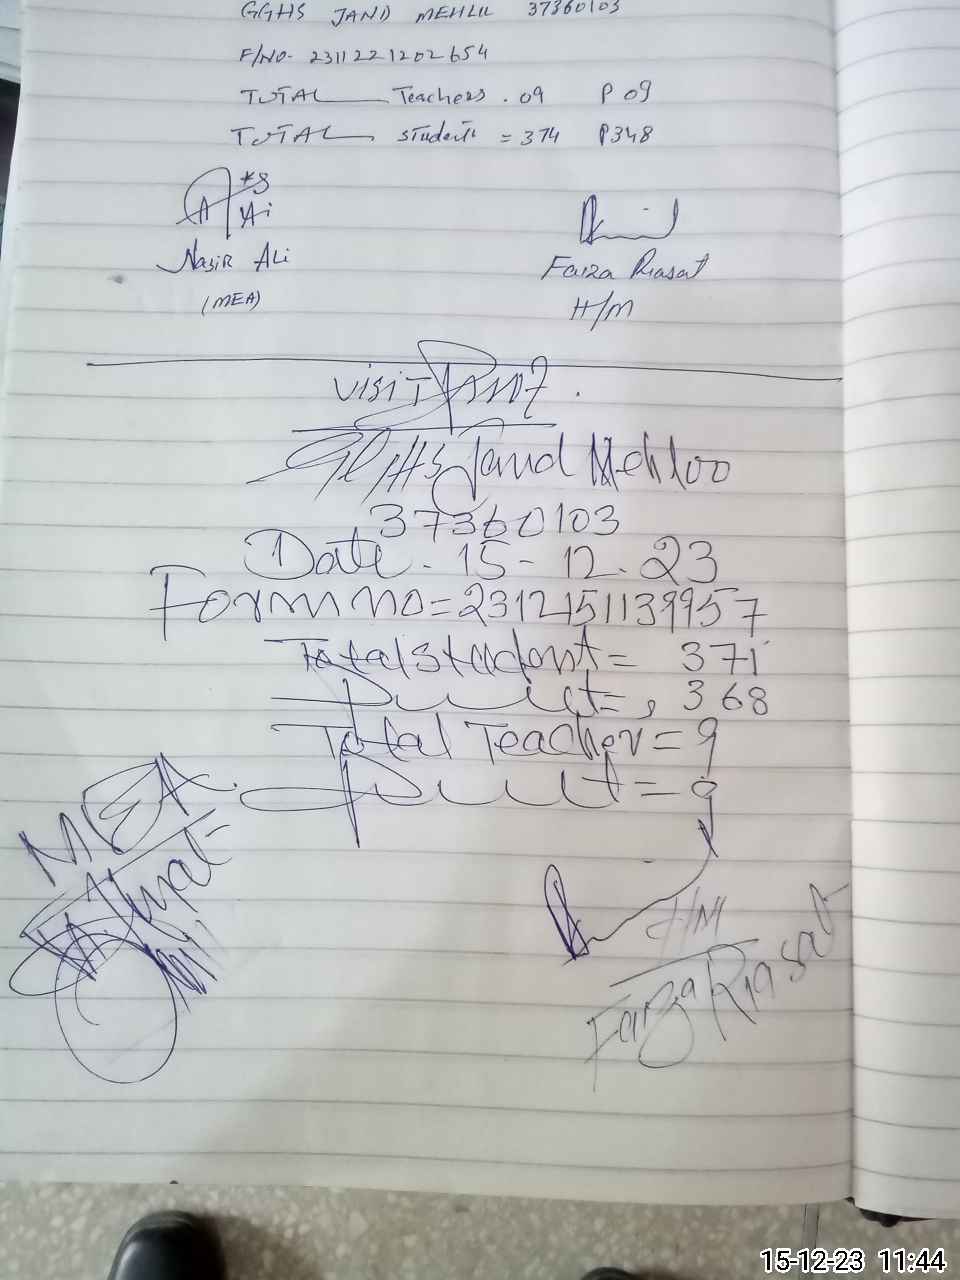 GGHS JAND MEHLU 37360103
F/NO- 2311221202654
TOTAL Teachers . 09 P 09
TOTAL students = 374 P348
Nasir Ali
(MEA)
Faiza Riasat
H/M
VISIT
GGHS Jand Mehloo
37360103
Date . 15 - 12 . 23
Form no = 2312151139957
Total student = 371
= , 368
Total Teacher = 9
= 9
MEA
HM
Faiza Riasat
15-12-23 11:44